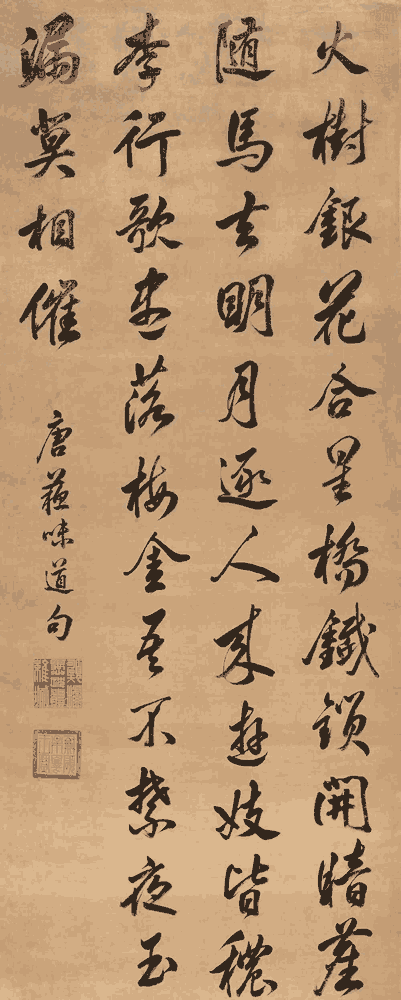 火樹銀花合星橋鐵鎖開暗塵
隨馬去明月逐人來遊妓皆穠
李行歌盡落梅金吾不禁夜玉
漏莫相催
唐蘓味道句